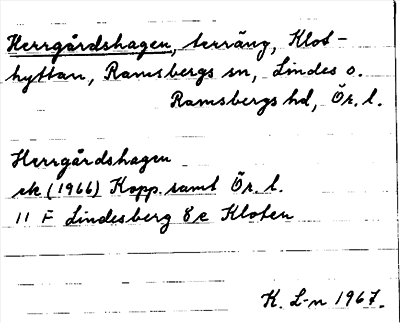 Herrgårdshagen, terräng, Klot-
hyttan, Ramsbergs sn, Lindes o.
Ramsbergs hd, Ör. l.
Herrgårdshagen
ek (1966) Kopp. samt Ör. l.
11 F Lindesberg 8 c Kloten
K. L-n 1967.